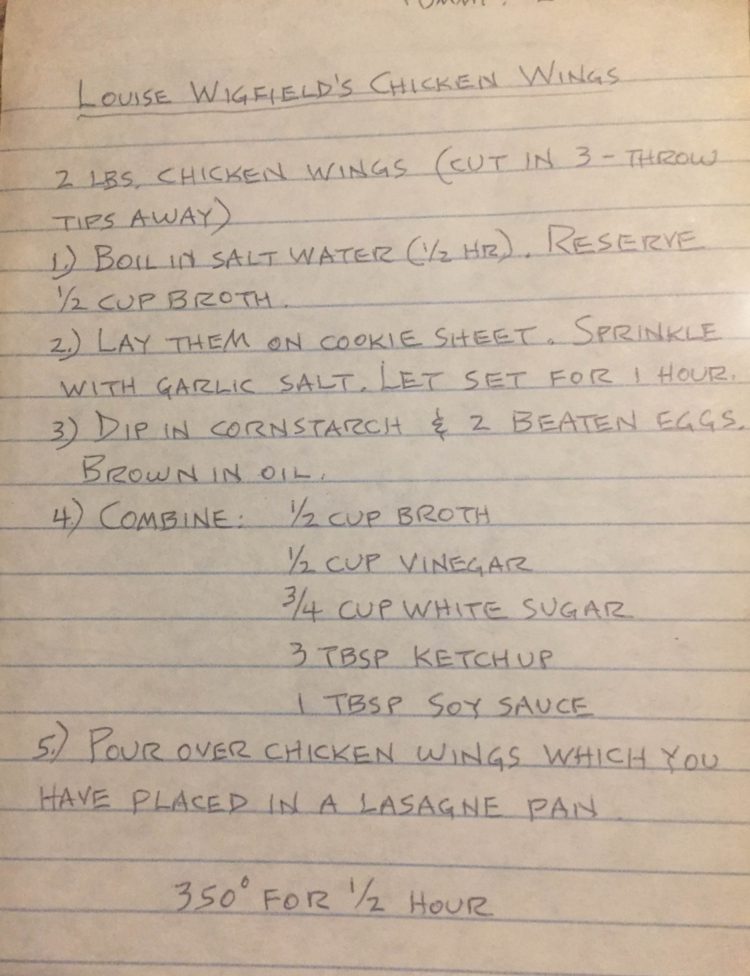 LOUISE WIGFIELD'S CHICKEN WINGS
2 LBS. CHICKEN WINGS (CUT IN 3 - THROW
TIPS AWAY)
1.) BOIL IN SALT WATER (1/2 HR). RESERVE
1/2 CUP BROTH.
2.) LAY THEM ON COOKIE SHEET. SPRINKLE
WITH GARLIC SALT. LET SET FOR 1 HOUR.
3.) DIP IN CORNSTARCH & 2 BEATEN EGGS.
BROWN IN OIL.
4.) COMBINE: 1/2 CUP BROTH
1/2 CUP VINEGAR
3/4 CUP WHITE SUGAR
3 TBSP KETCHUP
1 TBSP SOY SAUCE
5.) POUR OVER CHICKEN WINGS WHICH YOU
HAVE PLACED IN A LASAGNE PAN.
350° FOR 1/2 HOUR